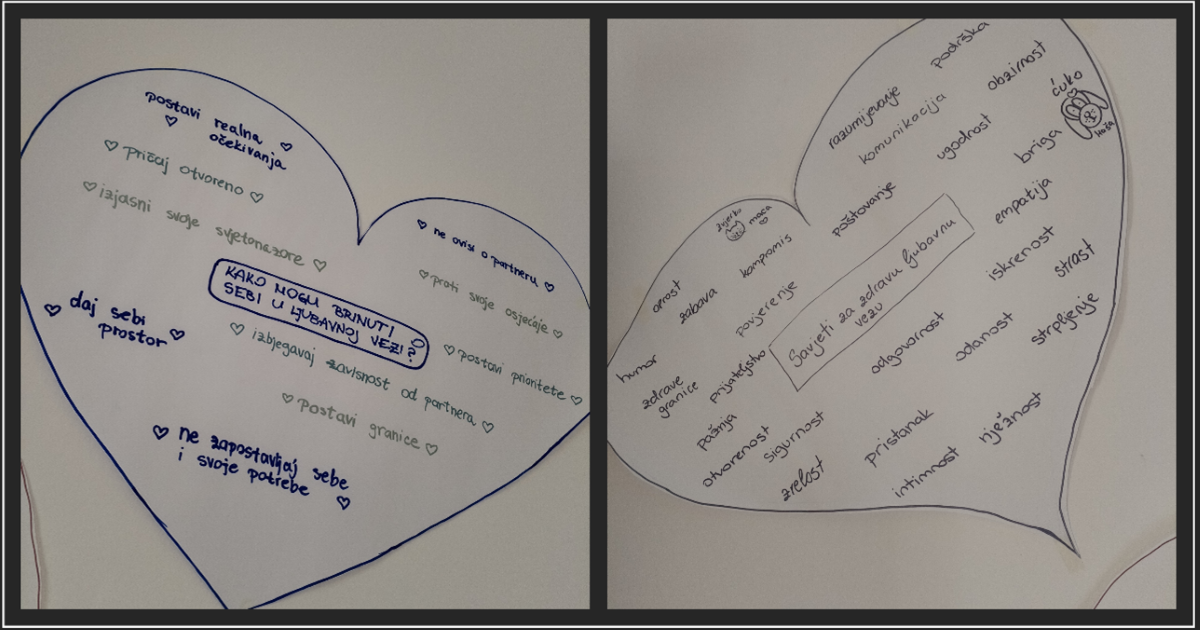 postavi realna
očekivanja
pričaj otvoreno
izjasni svoje svjetonazore
KAKO MOGU BRINUTI O
SEBI U LJUBAVNOJ VEZI?
ne ovisi o partneru
prati svoje osjećaje
postavi prioritete
daj sebi
prostor
izbjegavaj zavisnost od partnera
postavi granice
ne zapostavljaj sebe
i svoje potrebe
podrška
obzirnost
razumijevanje
komunikacija
ugodnost
ćuko
briga
poštovanje
empatija
maca
kompromis
zabava
povjerenje
Savjeti za zdravu ljubavnu
vezu
iskrenost
strast
humor
zdrave
granice
prijateljstvo
odgovornost
odanost
strpljenje
pažnja
otvorenost
sigurnost
zrelost
pristanak
intimnost
nježnost